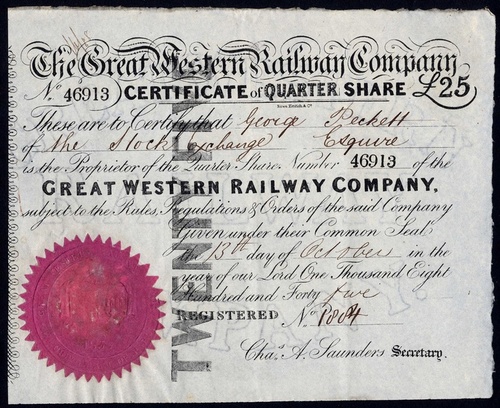 The Great Western Railway Company
No. 46913 CERTIFICATE of QUARTER SHARE £25
These are to Certify that George Peckett
of the Stock Exchange Esquire
is the Proprietor of the Quarter Share, Number 46913 of the
GREAT WESTERN RAILWAY COMPANY,
subject to the Rules, Regulations & Orders of the said Company
Given under their Common Seal
the 13th day of October in the
year of our Lord One Thousand Eight
Hundred and Forty five
REGISTERED No. 1804
Chas. A. Saunders Secretary.
TWENTY FIVE